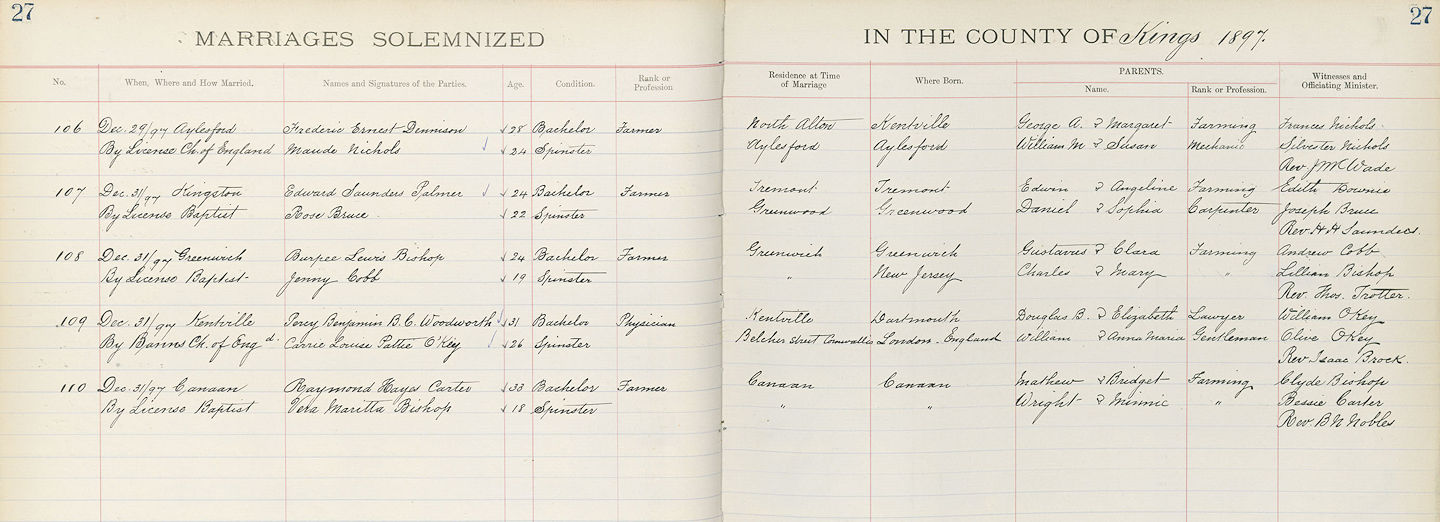 27
27
MARRIAGES SOLEMNIZED IN THE COUNTY OF Kings 1897.
No. When, Where and How Married. Names and Signatures of the Parties. Age. Condition. Rank or Profession Residence at Time of Marriage Where Born. PARENTS. Name. Rank or Profession. Witnesses and Officiating Minister.
106 Dec. 29/97 Aylesford Frederic Ernest Dennison 28 Bachelor Farmer North Alton Kentville George A. & Margaret Farming Frances Nichols
By License Ch. of England Maude Nichols 24 Spinster Aylesford Aylesford William M & Susan Mechanic Silvester Nichols
Rev J M C Wade
107 Dec. 31/97 Kingston Edward Saunders Palmer 24 Bachelor Farmer Tremont Tremont Edwin & Angeline Farming Edith Bownie
By License Baptist Rose Bruce 22 Spinster Greenwood Greenwood Daniel & Sophia Carpenter Joseph Bruce
Rev. H H Saunders.
108 Dec. 31/97 Greenwich Burpee Lewis Bishop 24 Bachelor Farmer Greenwich Greenwich Gustavus & Clara Farming Andrew Cobb
By License Baptist Jenny Cobb 19 Spinster " New Jersey Charles & Mary " Lillian Bishop
Rev. Thos. Trotter.
109 Dec. 31/97 Kentville Percy Benjamin B. C. Woodworth 31 Bachelor Physician Kentville Dartmouth Douglas B. & Elizabeth Lawyer William OKey
By Banns Ch. of Engd. Carrie Louise Pattie O'Key 26 Spinster Belcher Street Cornwallis London. England William & Anna Maria Gentleman Olive OKey
Rev. Isaac Brock.
110 Dec. 31/97 Canaan Raymond Hayes Carter 33 Bachelor Farmer Canaan Canaan Mathew & Bridget Farming Clyde Bishop
By License Baptist Vera Maritta Bishop 18 Spinster " " Wright & Minnie " Bessie Carter
Rev. B N Nobles